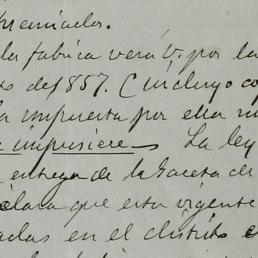 premiados.
la fabrica verá V. por la
de 1857. (incluyo co
a impuesta por ella
e impusiere — La ley
entrega de la Gaceta de
clara que esta vigente
adas en el distrito e